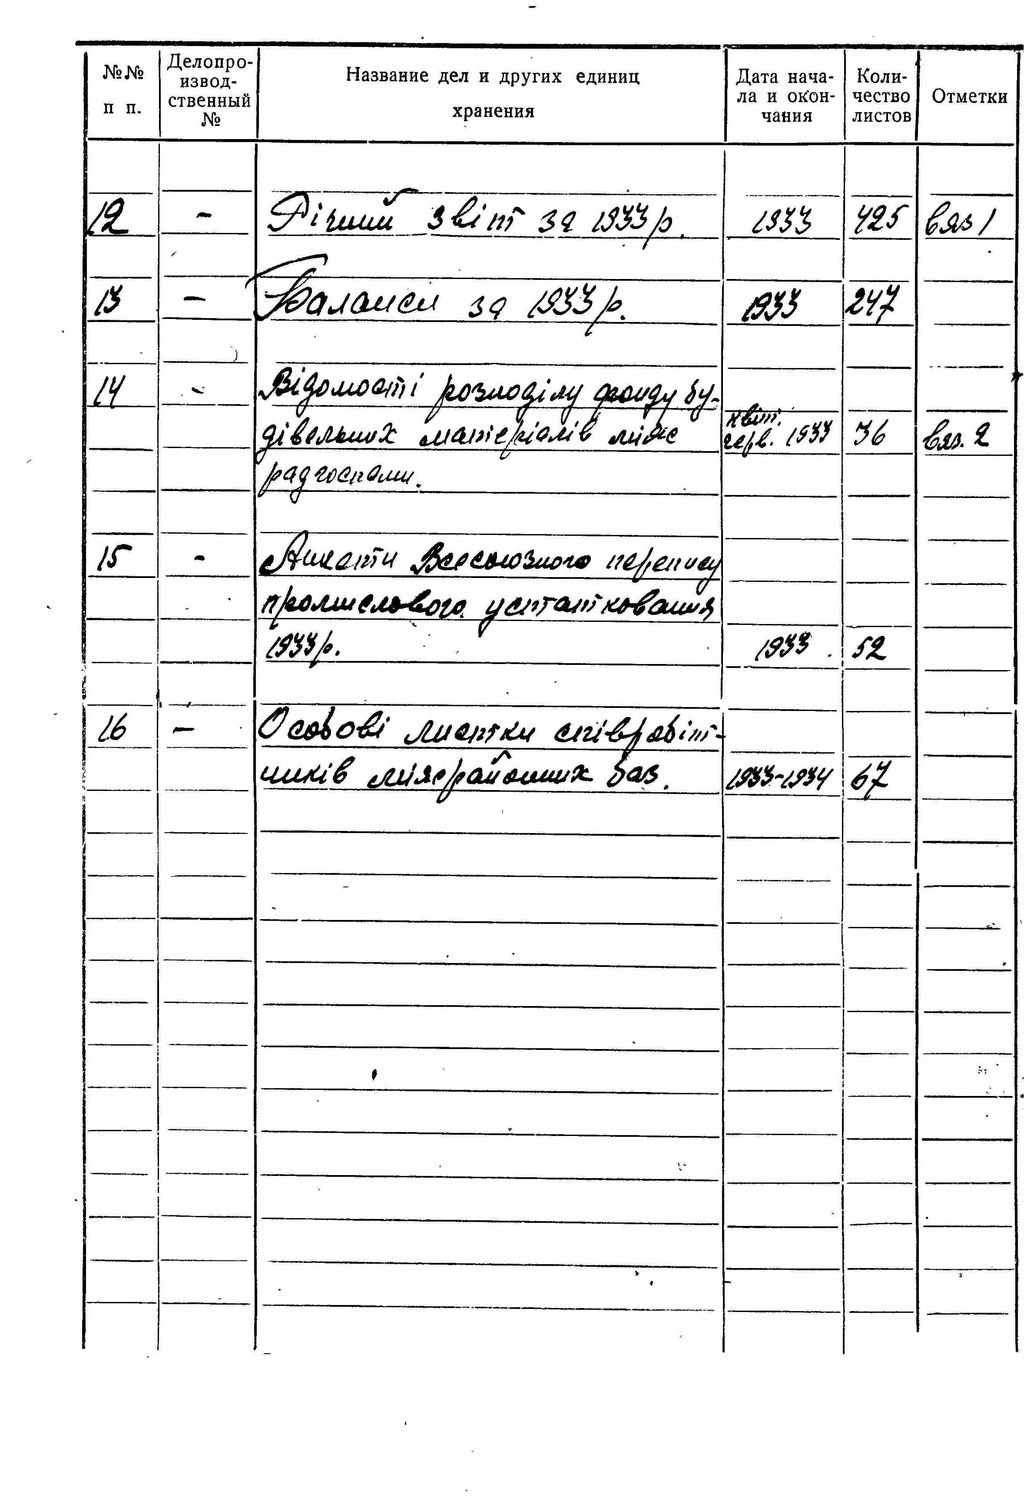 №№ п п. Делопро-извод-ственный № Название дел и других единиц хранения Дата нача-ла и окон-чания Коли-чество листов Отметки
12 – Річний звіт за 1933 р. 1933 425 вяз 1
13 – Баланси за 1933 р. 1933 247
14 - Відомості розподілу фонду бу-
дівельних матеріалів між квіт. черв. 1933 36 вяз. 2
радгоспами.
15 - Анкети Всесоюзного перепису
промислового устатковання
1933 р. 1933. 52
16 – Особові листки співробіт-
ників міжрайонних баз. 1933-1934 67